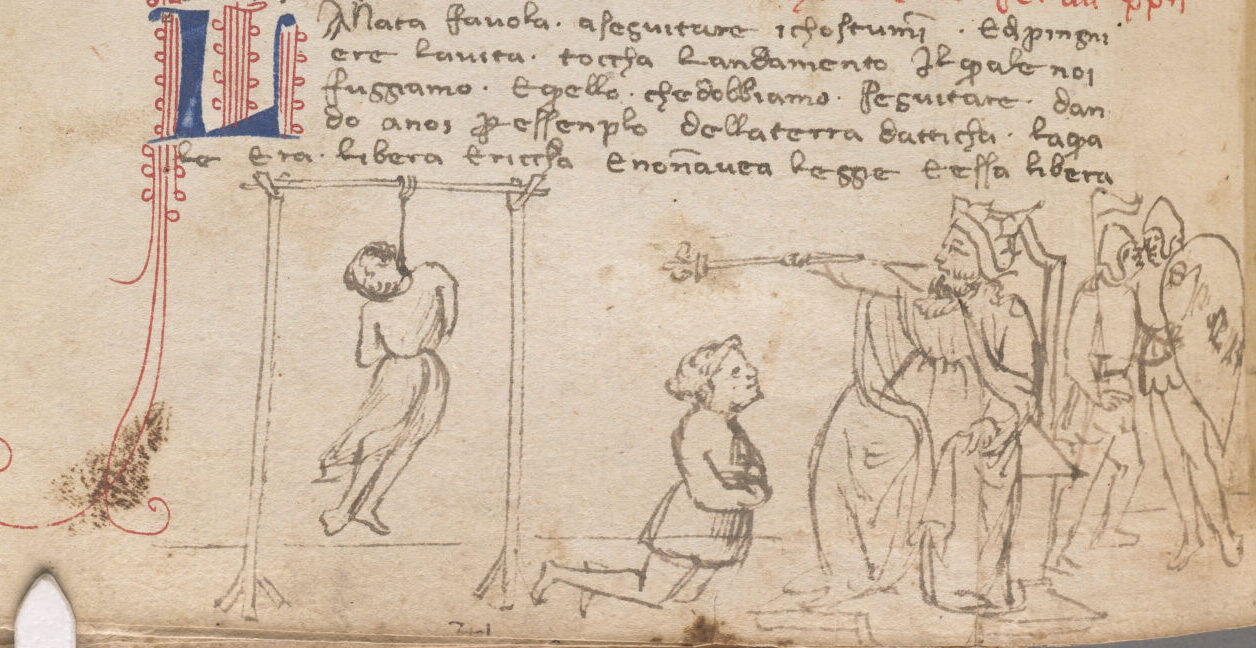 per da ppii
LA nata favola. aseguitare ichostumi . Edpingni
ere lavita. toccha Landamento Il qale noi
fuggiamo. Eqello. chedobbiamo. seguitare. dan
do anoi P essenplo dellaterra datticha. laqa
le Era. libera Ericcha Enon̄avea legge Eessa libera